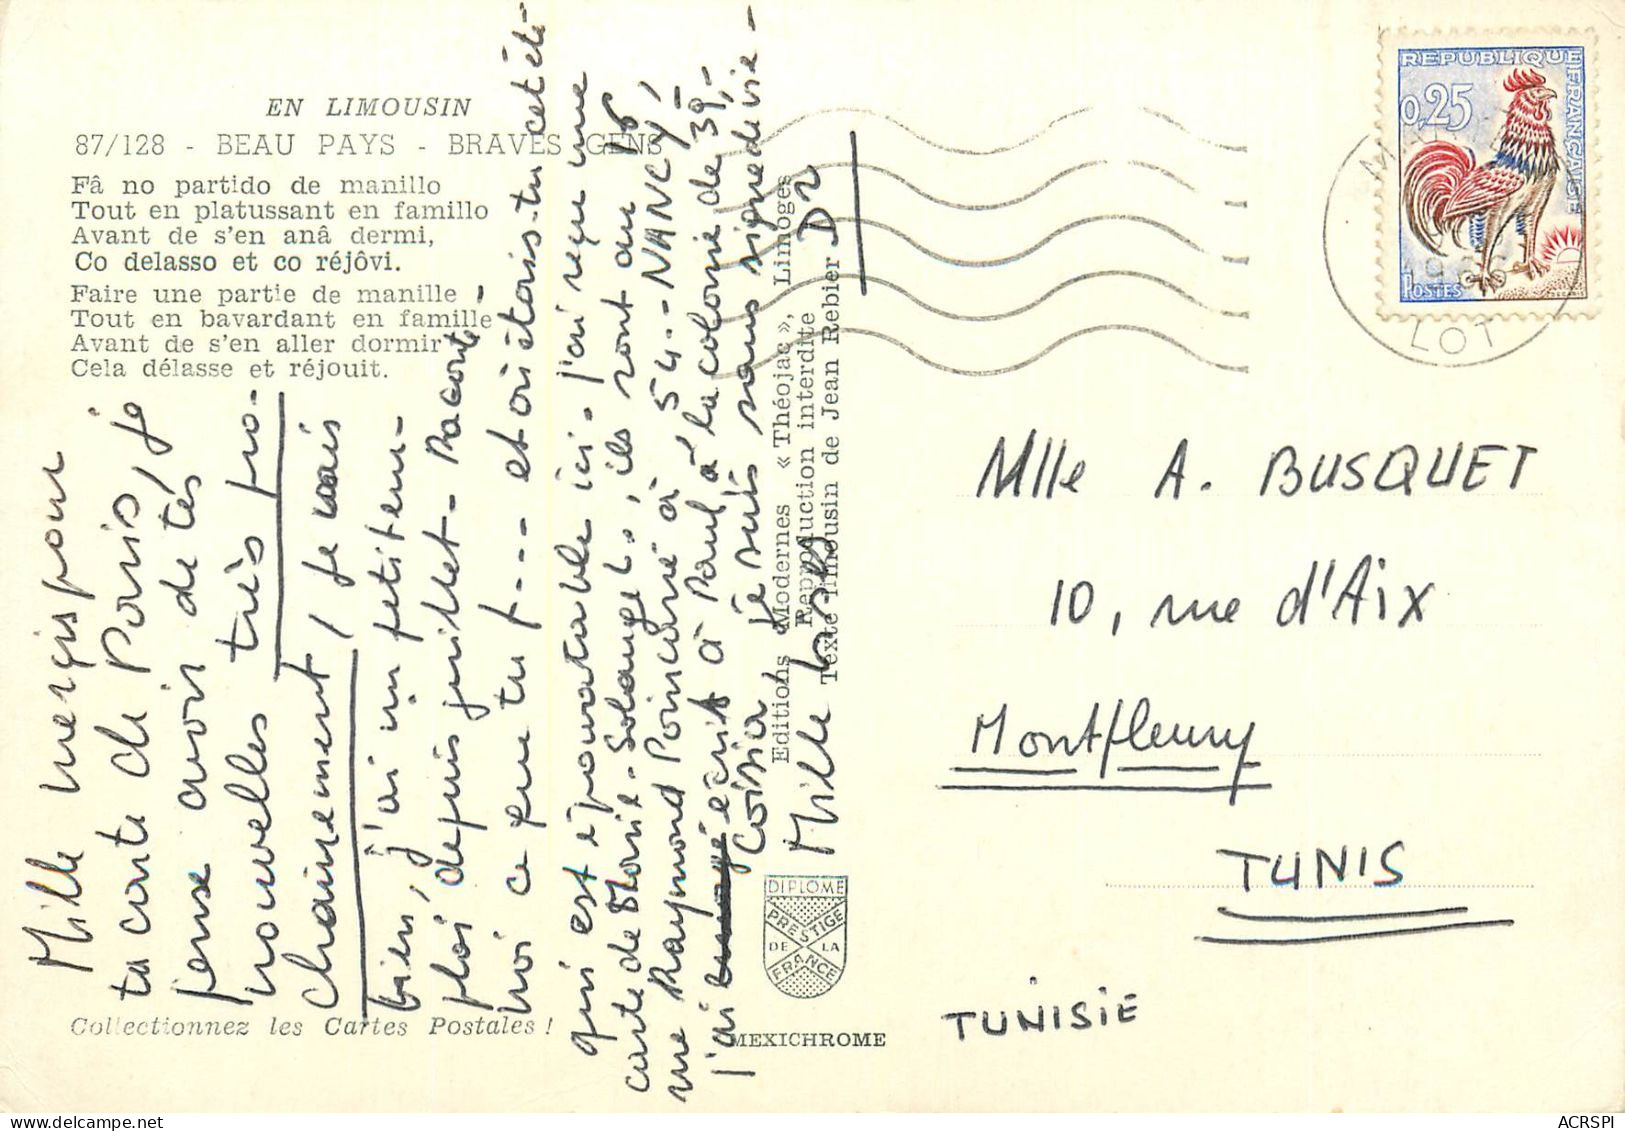 EN LIMOUSIN
87/128 - BEAU PAYS - BRAVES GENS
Fâ no partido de manillo
Tout en platussant en famillo
Avant de s'en anâ dermi,
Co delasso et co réjôvi.
Faire une partie de manille
Tout en bavardant en famille
Avant de s'en aller dormir
Cela délasse et réjouit.
Mille mercis pour
ta carte de Paris, je
pense avoir de tes
nouvelles très pro-
chainement, je vais
bien, j'ai un petit em-
ploi depuis juillet - Raconte-
moi ce que tu f--- et où étais-tu cet été -
qui est épouvantable ici. J'ai reçu une
carte de Marie-Solange, ils sont au 16
rue Raymond Poincarré à 54.- NANCY,
j'ai écrit à Paul à la colonie de 39,-
je suis sans signe de vie -
Mille bses
Collectionnez les Cartes Postales !
Editions Modernes « Théojac », Limoges
Reproduction interdite
Texte limousin de Jean Rebier
DIPLOME
PRESTIGE
DE LA
FRANCE
MEXICHROME
REPUBLIQUE FRANÇAISE
0,25
POSTES
LOT
Mlle A. BUSQUET
10, rue d'Aix
Montfleury
TUNIS
TUNISIE
ACRSPI